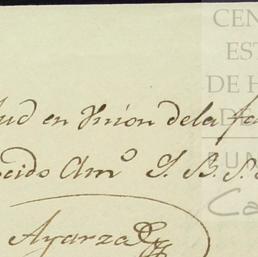 CEN
EST
DE H
ud en Union de la fa
cido Amº S. B. S.
Ayarza
UN
Ca